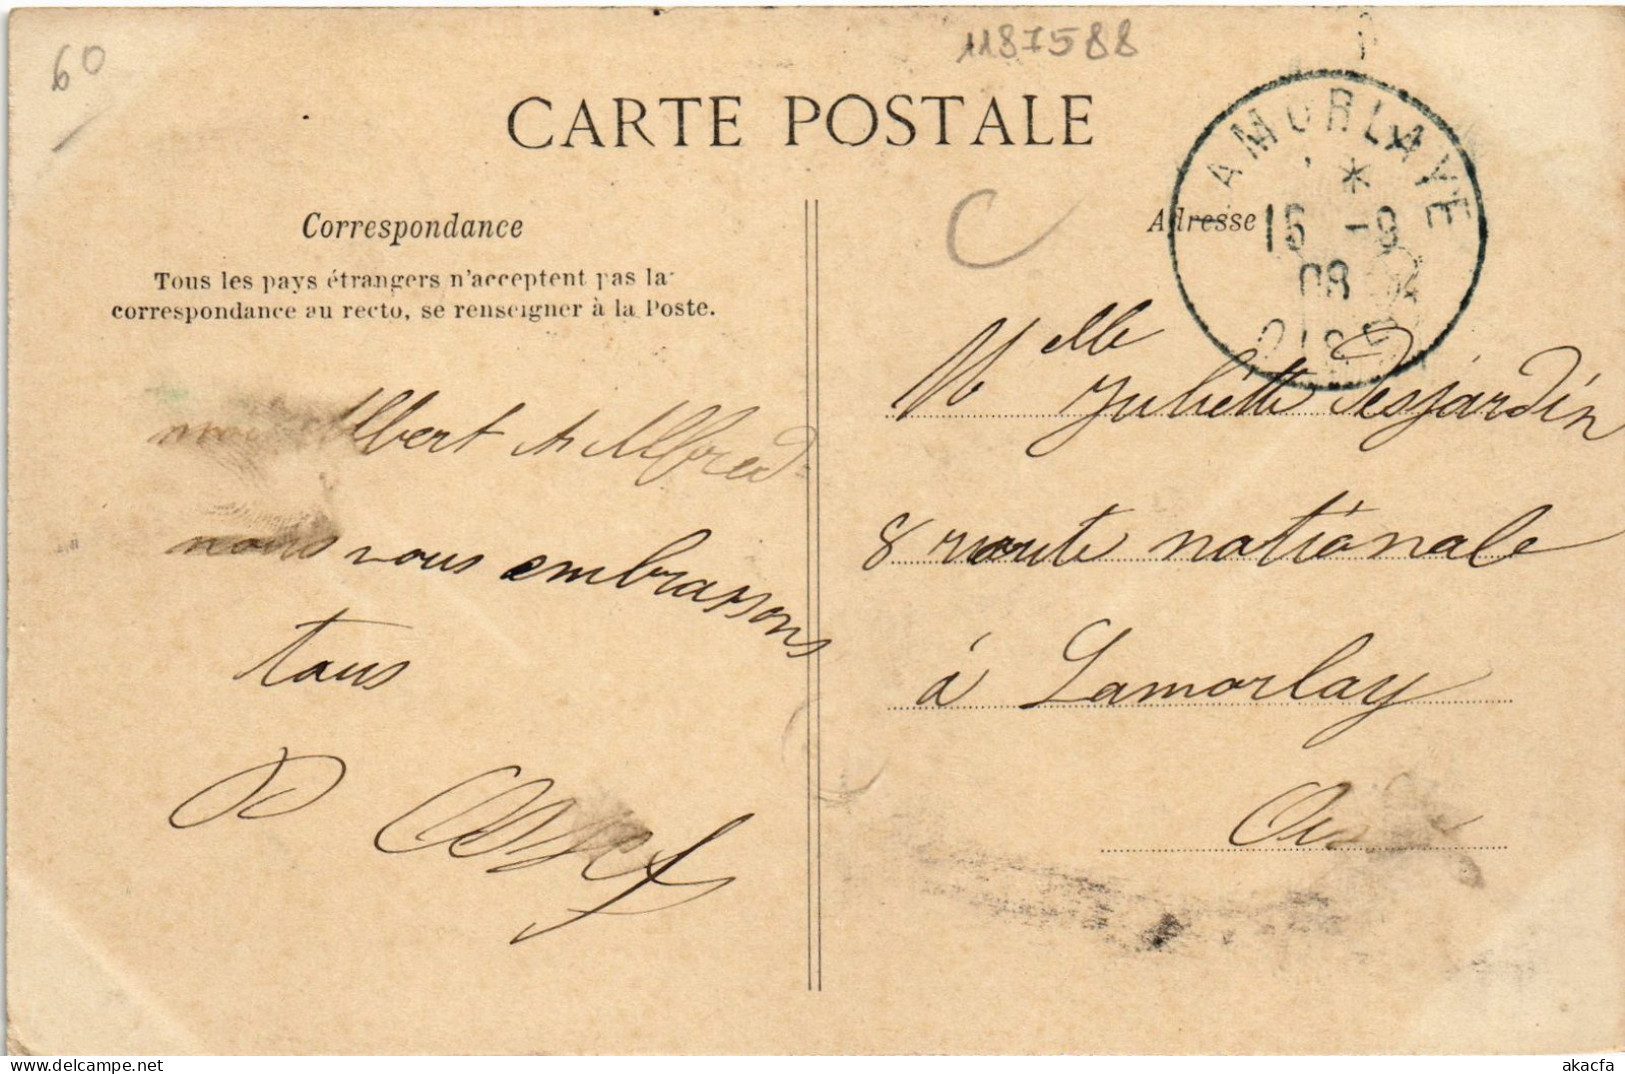 60
1187588
CARTE POSTALE
C
Correspondance
Tous les pays étrangers n'acceptent pas la
correspondance au recto, se renseigner à la Poste.
Adresse
LAMORLAYE
*
15 -9
08
OISE
Albert et Alfred
nous vous embrassons
tous
Melle Juliette Desjardin
8 route nationale
à Lamorlay
Oise
akacfa